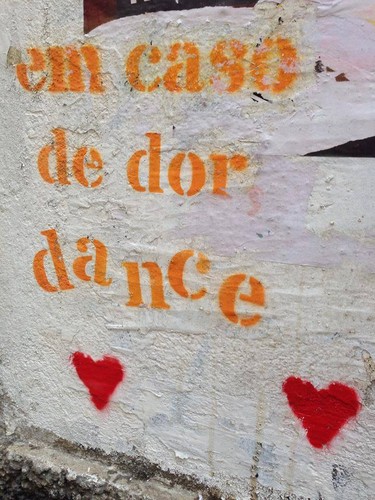 em caso
de dor
dance